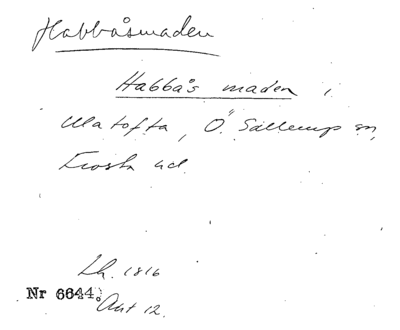 Habbåsmaden
Habbås maden i
Ulatofta, Ö. Sallerup sn,
Frosta hd.
Lh. 1816
Nr 6644.
Akt 12.